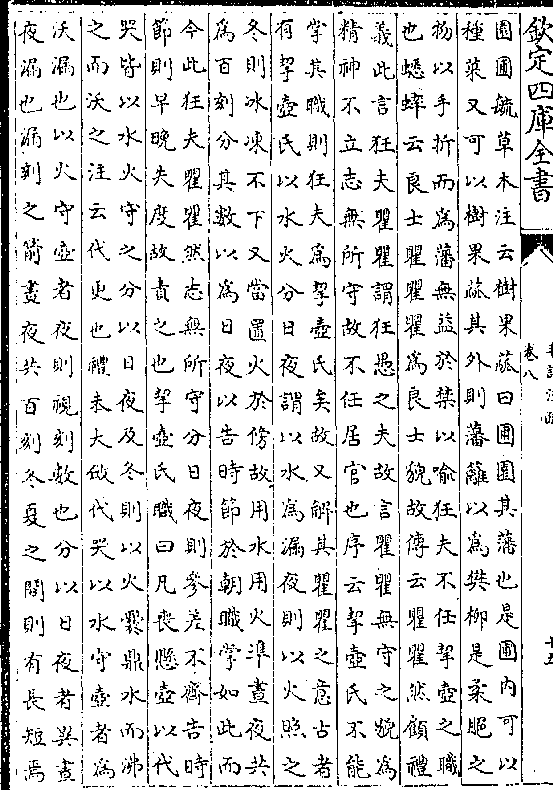 欽定四庫全書
卷八
十五
園圃毓草木注云樹果蓏曰圃園其藩也是圃内可以
種菜又可以樹果蓏其外則藩籬以為樊柳是柔脆之
物以手折而為藩無益於禁以喻狂夫不任挈壺之職
也蟋蟀云良士瞿瞿瞿為良士貌故傳云瞿瞿然顧禮
義此言狂夫瞿瞿謂狂愚之夫故言瞿瞿無守之貌為
精神不立志無所守故不任居官也序云挈壺氏不能
掌其職則狂夫為挈壺氏矣故又解其瞿瞿之意古者
有挈壺氏以水火分日夜謂以水為漏夜則以火照之
冬則冰凍不下又當置火於傍故用水用火準晝夜共
為百刻分其數以為日夜以告時節於朝職掌如此而
今此狂夫瞿瞿然志無所守分日夜則參差不齊告時
節則早晚失度故責之也挈壺氏職曰凡喪懸壺以代
哭皆以水火守之分以日夜及冬則以火爨鼎水而沸
之而沃之注云代更也禮未大斂代哭以水守壺者為
沃漏也以火守壺者夜則視刻數也分以日夜者異晝
夜漏也漏刻之箭晝夜共百刻冬夏之間則有長短焉